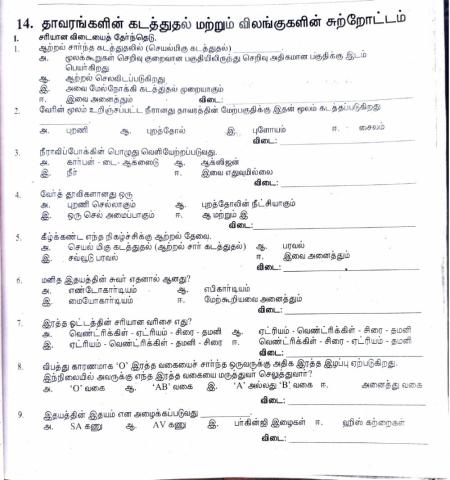 14. தாவரங்களின் கடத்துதல் மற்றும் விலங்குகளின் சுற்றோட்டம்
I. சரியான விடையைத் தேர்ந்தெடு.
1. ஆற்றல் சார்ந்த கடத்துதலில் (செயல்மிகு கடத்துதல்) ____________
அ. மூலக்கூறுகள் செறிவு குறைவான பகுதியிலிருந்து செறிவு அதிகமான பகுதிக்கு இடம்
பெயர்கிறது
ஆ. ஆற்றல் செலவிடப்படுகிறது
இ. அவை மேல்நோக்கி கடத்துதல் முறையாகும்
ஈ. இவை அனைத்தும் விடை: ____________
2. வேரின் மூலம் உறிஞ்சப்பட்ட நீரானது தாவரத்தின் மேற்பகுதிக்கு இதன் மூலம் கடத்தப்படுகிறது
____________
அ. புறணி ஆ. புறத்தோல் இ. புளோயம் ஈ. சைலம்
விடை: ____________
3. நீராவிப்போக்கின் பொழுது வெளியேற்றப்படுவது.
அ. கார்பன் - டை- ஆக்ஸைடு ஆ. ஆக்ஸிஜன்
இ. நீர் ஈ. இவை எதுவுமில்லை
விடை: ____________
4. வேர்த் தூவிகளானது ஒரு
அ. புறணி செல்லாகும் ஆ. புறத்தோலின் நீட்சியாகும்
இ. ஒரு செல் அமைப்பாகும் ஈ. ஆ மற்றும் இ
விடை: ____________
5. கீழ்க்கண்ட எந்த நிகழ்ச்சிக்கு ஆற்றல் தேவை.
அ. செயல் மிகு கடத்துதல் (ஆற்றல் சார் கடத்துதல்) ஆ. பரவல்
இ. சவ்வூடு பரவல் ஈ. இவை அனைத்தும்
விடை: ____________
6. மனித இதயத்தின் சுவர் எதனால் ஆனது?
அ. எண்டோகார்டியம் ஆ. எபிகார்டியம்
இ. மையோகார்டியம் ஈ. மேற்கூறியவை அனைத்தும்
விடை: ____________
7. இரத்த ஓட்டத்தின் சரியான வரிசை எது?
அ. வெண்ட்ரிக்கிள் - ஏட்ரியம் - சிரை - தமனி ஆ. ஏட்ரியம் - வெண்ட்ரிக்கிள் - சிரை - தமனி
இ. ஏட்ரியம் - வெண்ட்ரிக்கிள் - தமனி - சிரை ஈ. வெண்ட்ரிக்கிள் - ஏட்ரியம் - சிரை - தமனி
விடை: ____________
8. விபத்து காரணமாக 'O' இரத்த வகையைச் சார்ந்த ஒருவருக்கு அதிக இரத்த இழப்பு ஏற்படுகிறது.
இந்நிலையில் அவருக்கு எந்த இரத்த வகையை மருத்துவர் செலுத்துவார்?
அ. 'O' வகை ஆ. 'AB' வகை இ. 'A' அல்லது 'B' வகை ஈ. அனைத்து வகை
விடை: ____________
9. இதயத்தின் இதயம் என அழைக்கப்படுவது ____________
அ. SA கணு ஆ. AV கணு இ. பர்கின்ஜி இழைகள் ஈ. ஹிஸ் கற்றைகள்
விடை: ____________